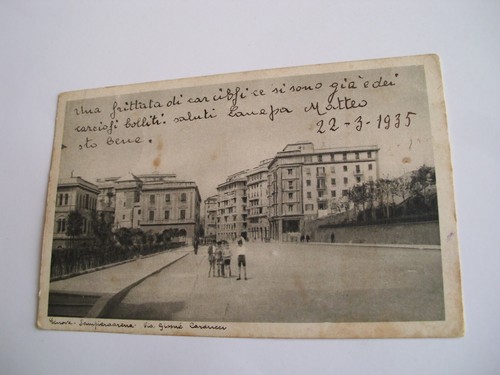 Una frittata di carciofi ce si sono già e dei
carciofi bolliti. saluti Canepa Matteo
sto bene.
22-3-1935
Genova - Sampierdarena Via Giosuè Carducci